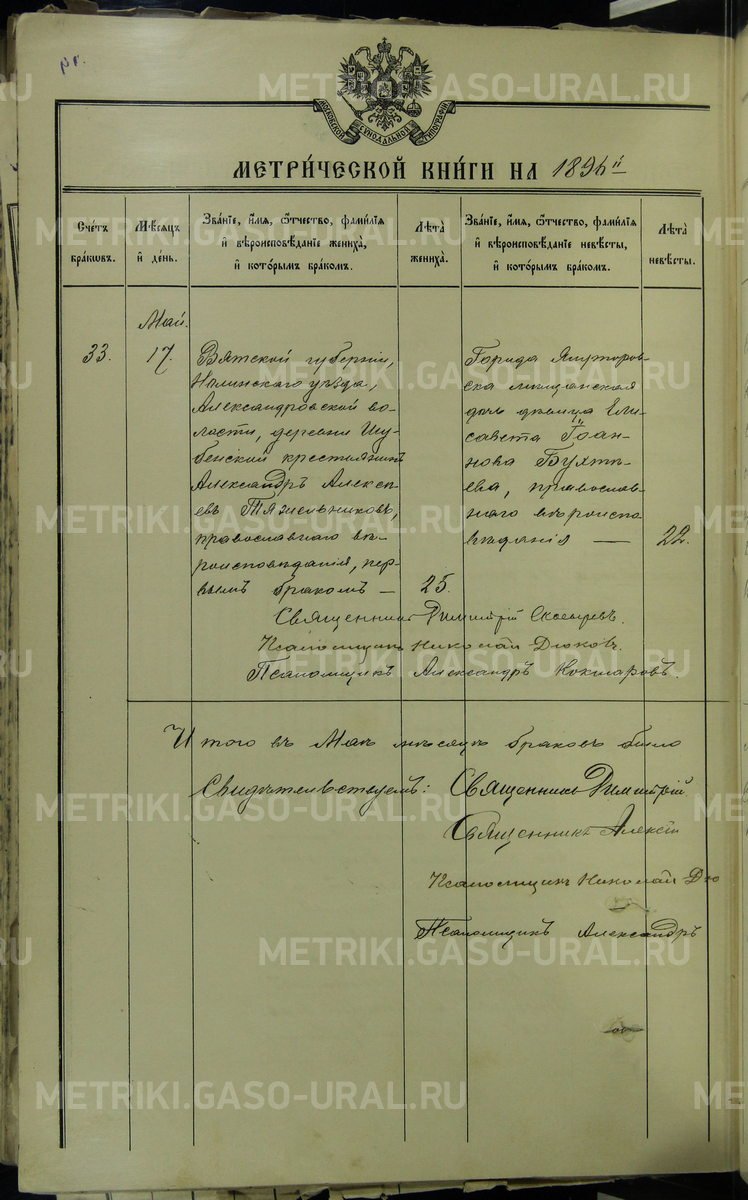 МОСКОВСКОЙ СѴНОДАЛЬНОЙ ТИПОГРАФІИ
МЕТРИ́ЧЕСКОЙ КНИ́ГИ НА 1896й
Сче́тъ бра́кѡвъ.
Мѣ́сѧцъ и҆ де́нь.
Зва́нїе, и҆́мѧ, ѻ҆́тчество, фамѝлїѧ и҆ вѣроисповѣ́данїе жениха̀, и҆ кото́рымъ бра́комъ.
Лѣ́та жениха̀.
Зва́нїе, и҆́мѧ, ѻ҆́тчество, фамѝлїѧ и҆ вѣроисповѣ́данїе невѣ́сты, и҆ кото́рымъ бра́комъ.
Лѣ́та невѣ́сты.
Май.
33.
17.
Вятской губерніи,
Нолинскаго уѣзда,
Александровской во-
лости, деревни Шу-
бенской крестьянинъ
Александръ Алексѣ-
евъ Тяжельниковъ,
православнаго вѣ-
роисповѣданія, пер-
вымъ бракомъ —
25.
Города Ялуторов-
ска мѣщанская
дочь дѣвица Ели-
савета Іоан-
нова Бухтѣ-
ева, православ-
наго вѣроиспо-
вѣданія —
22.
Священникъ Димитрій
Псаломщикъ Николай Дюковъ.
Псаломщикъ Александръ Кокшаровъ.
Итого въ Маѣ мѣсяцѣ браковъ было
Свидѣтельствуемъ: Священникъ Димитрій
Священникъ Алексій
Псаломщикъ Николай Дю
Псаломщикъ Александръ
METRIKI.GASO-URAL.RU